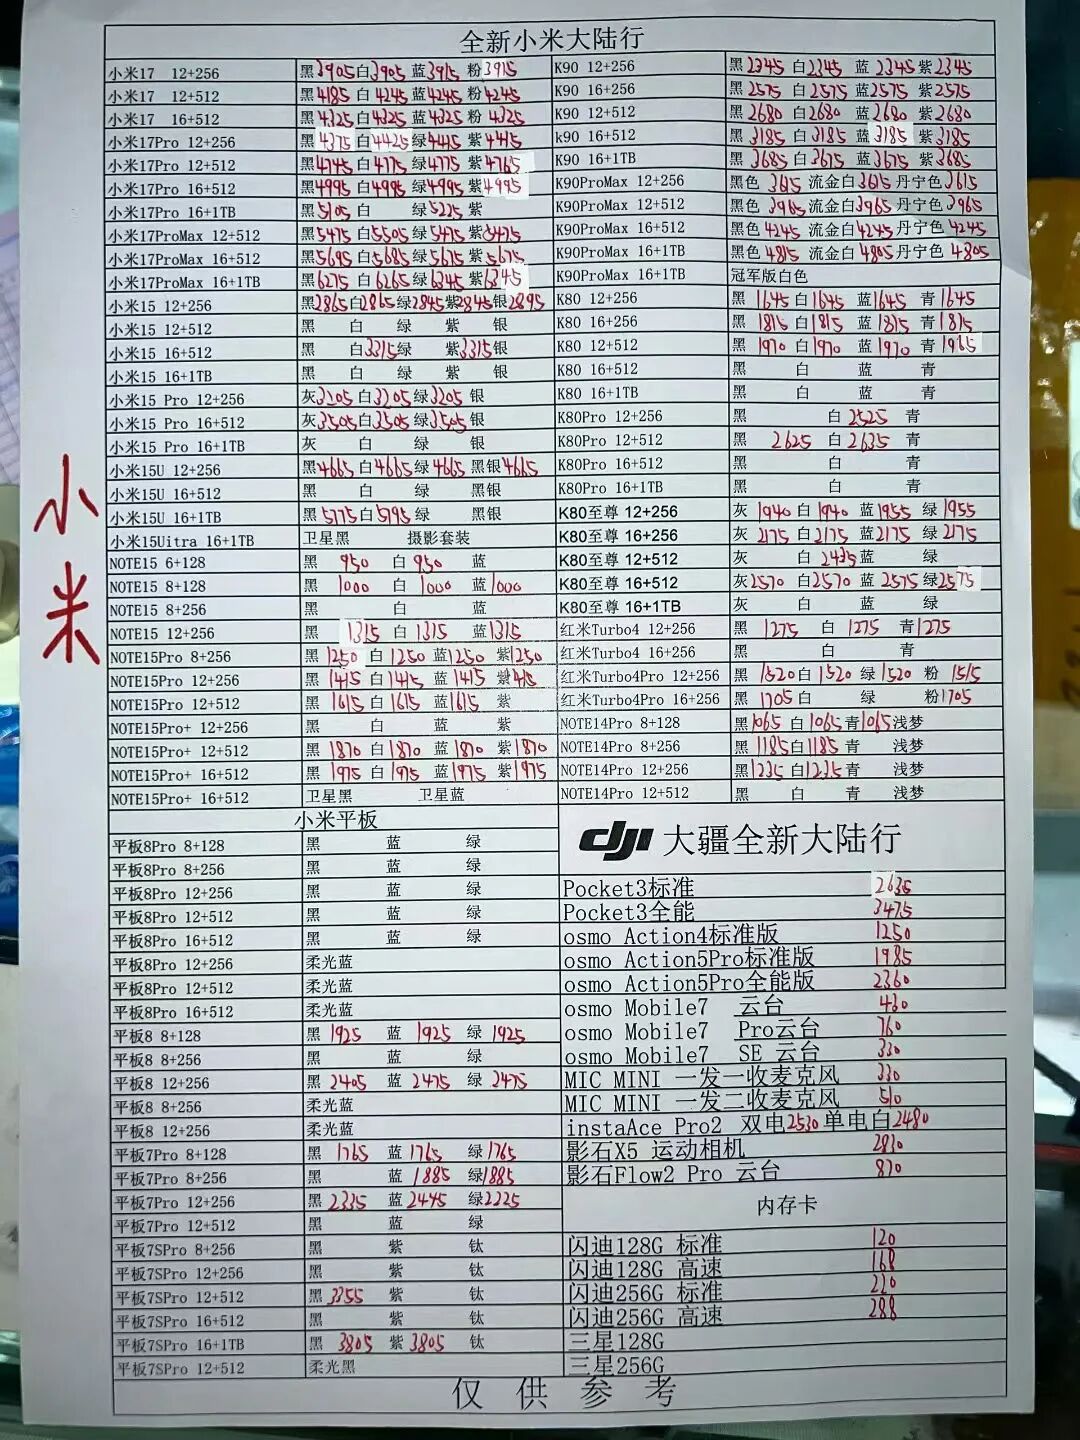 全新小米大陆行
小米
小米17 12+256 黑3905白3905 蓝3915 粉3915
小米17 12+512 黑4185 白4245蓝4245 粉4245
小米17 16+512 黑4325 白4325 蓝4325 粉4325
小米17Pro 12+256 黑4375 白4425绿4445紫4445
小米17Pro 12+512 黑4745 白4775 绿4775 紫4765
小米17Pro 16+512 黑4995 白4995 绿4995紫4995
小米17Pro 16+1TB 黑5105 白 绿5225 紫
小米17ProMax 12+512 黑5475 白5505 绿5475 紫5475
小米17ProMax 16+512 黑5695 白5685 绿5675 紫5675
小米17ProMax 16+1TB 黑6275 白6265 绿6345 紫6345
小米15 12+256 黑2865白2865绿2845紫2845银2895
小米15 12+512 黑 白 绿 紫 银
小米15 16+512 黑 白3315绿 紫3315银
小米15 16+1TB 黑 白 绿 紫 银
小米15 Pro 12+256 灰3205 白3205 绿3205 银
小米15 Pro 16+512 灰3505白3505 绿3505 银
小米15 Pro 16+1TB 灰 白 绿 银
小米15U 12+256 黑4665白4665绿4665 黑银4665
小米15U 16+512 黑 白 绿 黑银
小米15U 16+1TB 黑5775白5795绿 黑银
小米15Uitra 16+1TB 卫星黑 摄影套装
NOTE15 6+128 黑 950 白 950 蓝
NOTE15 8+128 黑 1000 白 1000 蓝1000
NOTE15 8+256 黑 白 蓝
NOTE15 12+256 黑 1315 白 1315 蓝1315
NOTE15Pro 8+256 黑 1250 白 1250 蓝1250 紫1250
NOTE15Pro 12+256 黑 1415 白1415 蓝1415 紫1415
NOTE15Pro 12+512 黑 1615 白 1615 蓝1615 紫
NOTE15Pro+ 12+256 黑 白 蓝 紫
NOTE15Pro+ 12+512 黑 1870 白1870 蓝1870 紫1870
NOTE15Pro+ 16+512 黑 1975 白 1975 蓝1975 紫1975
NOTE15Pro+ 16+512 卫星黑 卫星蓝
小米平板
平板8Pro 8+128 黑 蓝 绿
平板8Pro 8+256 黑 蓝 绿
平板8Pro 12+256 黑 蓝 绿
平板8Pro 12+512 黑 蓝 绿
平板8Pro 16+512 黑 蓝 绿
平板8Pro 12+256 柔光蓝
平板8Pro 12+512 柔光蓝
平板8Pro 16+512 柔光蓝
平板8 8+128 黑 1925 蓝 1925 绿 1925
平板8 8+256 黑 蓝 绿
平板8 12+256 黑 2405 蓝 2475 绿 2475
平板8 8+256 柔光蓝
平板8 12+256 柔光蓝
平板7Pro 8+128 黑 1765 蓝 1765 绿1765
平板7Pro 8+256 黑 蓝 1885 绿1885
平板7Pro 12+256 黑 2335 蓝 2445 绿2225
平板7Pro 12+512 黑 蓝 绿
平板7SPro 8+256 黑 紫 钛
平板7SPro 12+256 黑 紫 钛
平板7SPro 12+512 黑 3355 紫 钛
平板7SPro 16+512 黑 紫 钛
平板7SPro 16+1TB 黑 3805 紫 3805 钛
平板7SPro 12+512 柔光黑
K90 12+256 黑2345 白2345 蓝 2345紫2345
K90 16+256 黑2575 白2575 蓝2575 紫2575
K90 12+512 黑2680 白2680 蓝2680 紫2680
k90 16+512 黑3185 白3185 蓝3185 紫3185
K90 16+1TB 黑3685 白3675 蓝3675 紫3685
K90ProMax 12+256 黑色 3615 流金白3615丹宁色3615
K90ProMax 12+512 黑色 3965流金白3965丹宁色3965
K90ProMax 16+512 黑色4245流金白4245丹宁色 4245
K90ProMax 16+1TB 黑色4815 流金白4805丹宁色 4805
K90ProMax 16+1TB 冠军版白色
K80 12+256 黑 1645 白1645 蓝1645 青1645
K80 16+256 黑 1815 白1815 蓝1815 青1815
K80 12+512 黑 1970 白1970 蓝1970 青1965
K80 16+512 黑 白 蓝 青
K80 16+1TB 黑 白 蓝 青
K80Pro 12+256 黑 白 2525 青
K80Pro 12+512 黑 2625 白2635 青
K80Pro 16+512 黑 白 青
K80Pro 16+1TB 黑 白 青
K80至尊 12+256 灰 1940 白1940 蓝1955 绿1955
K80至尊 16+256 灰 2175 白2175 蓝2175 绿2175
K80至尊 12+512 灰 白2435蓝 绿
K80至尊 16+512 灰2570 白2570 蓝2575绿2575
K80至尊 16+1TB 灰 白 蓝 绿
红米Turbo4 12+256 黑 1275 白 1275 青1275
红米Turbo4 16+256 黑 白 青
红米Turbo4Pro 12+256 黑 1520白1520 绿1520 粉 1515
红米Turbo4Pro 16+256 黑 1705白 绿 粉1705
NOTE14Pro 8+128 黑1065 白1065青1065浅梦
NOTE14Pro 8+256 黑 1185白1185 青 浅梦
NOTE14Pro 12+256 黑1235白1235青 浅梦
NOTE14Pro 12+512 黑 白 青 浅梦
dji 大疆全新大陆行
Pocket3标准 2635
Pocket3全能 3475
osmo Action4标准版 1250
osmo Action5Pro标准版 1985
osmo Action5Pro全能版 2360
osmo Mobile7 云台 430
osmo Mobile7 Pro云台 760
osmo Mobile7 SE 云台 330
MIC MINI 一发一收麦克风 330
MIC MINI 一发二收麦克风 510
instaAce Pro2 双电2530单电白2480
影石X5 运动相机 2830
影石Flow2 Pro 云台 870
内存卡
闪迪128G 标准 120
闪迪128G 高速 168
闪迪256G 标准 220
闪迪256G 高速 288
三星128G
三星256G
仅供参考